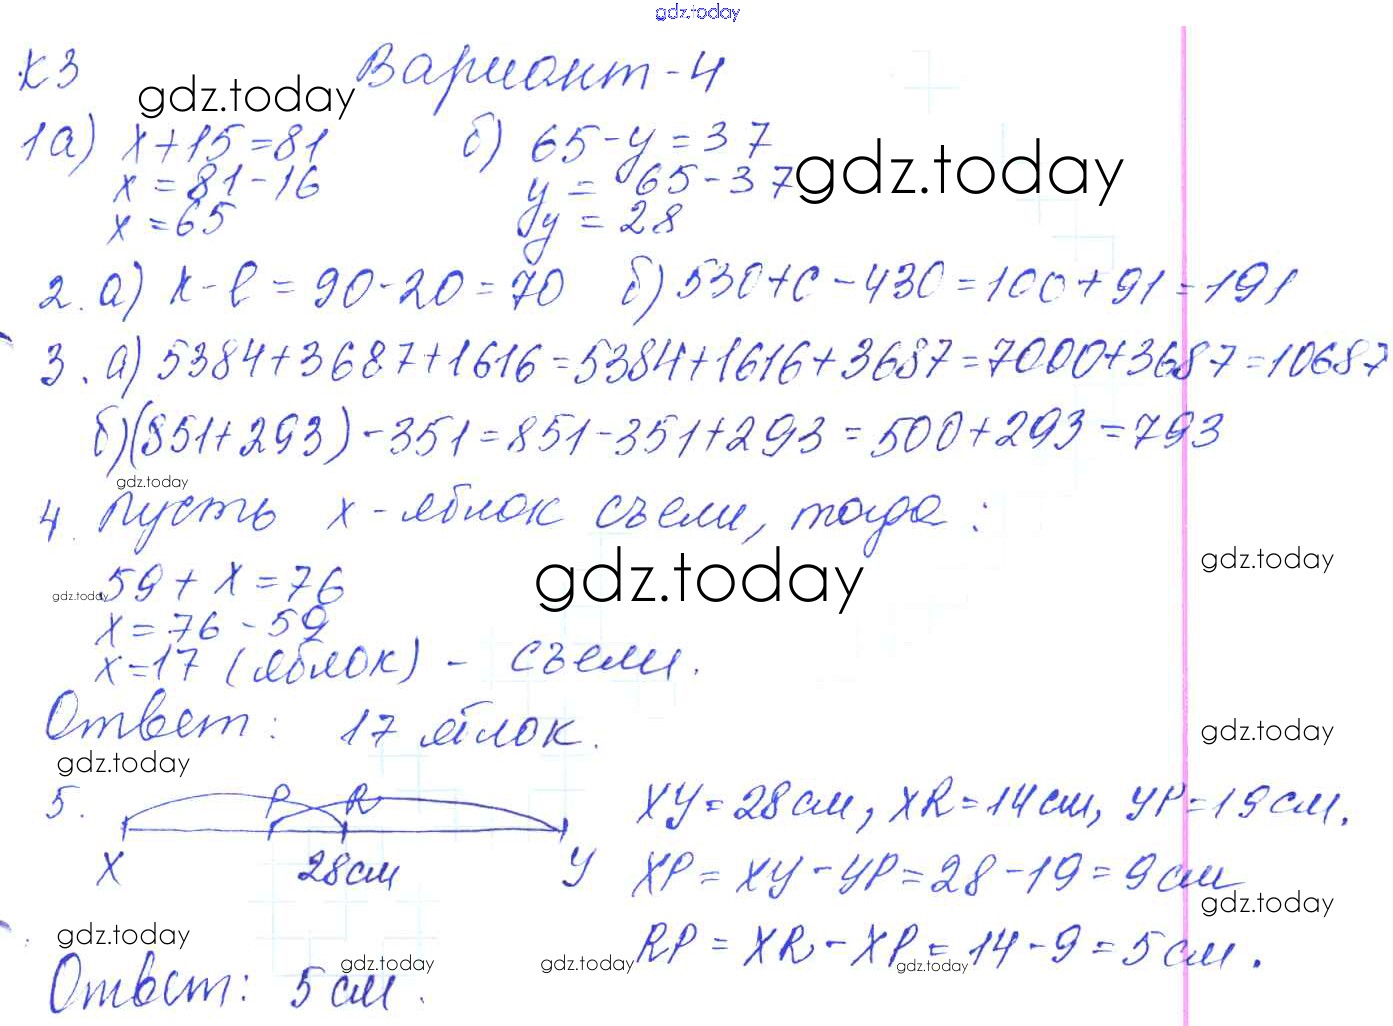 gdz.today
К3 Вариант-4
gdz.today
1а) x+15=81 б) 65-y=37
gdz.today
x=81-16 y=65-37
x=65 y=28
2. а) k-l=90-20=70 б) 530+c-430=100+91=191
3. а) 5384+3687+1616=5384+1616+3687=7000+3687=10687
б) (851+293)-351=851-351+293=500+293=793
gdz.today
4. Пусть x-яблок съели, тогда:
gdz.today
gdz.today
59+x=76
gdz.today
x=76-59
x=17 (яблок) - съели.
Ответ: 17 яблок.
gdz.today
gdz.today
5. P R XY=28см, XR=14см, YP=19см.
X 28см Y XP=XY-YP=28-19=9см
gdz.today
gdz.today
RP=XR-XP=14-9=5см.
gdz.today
gdz.today
gdz.today
Ответ: 5см.